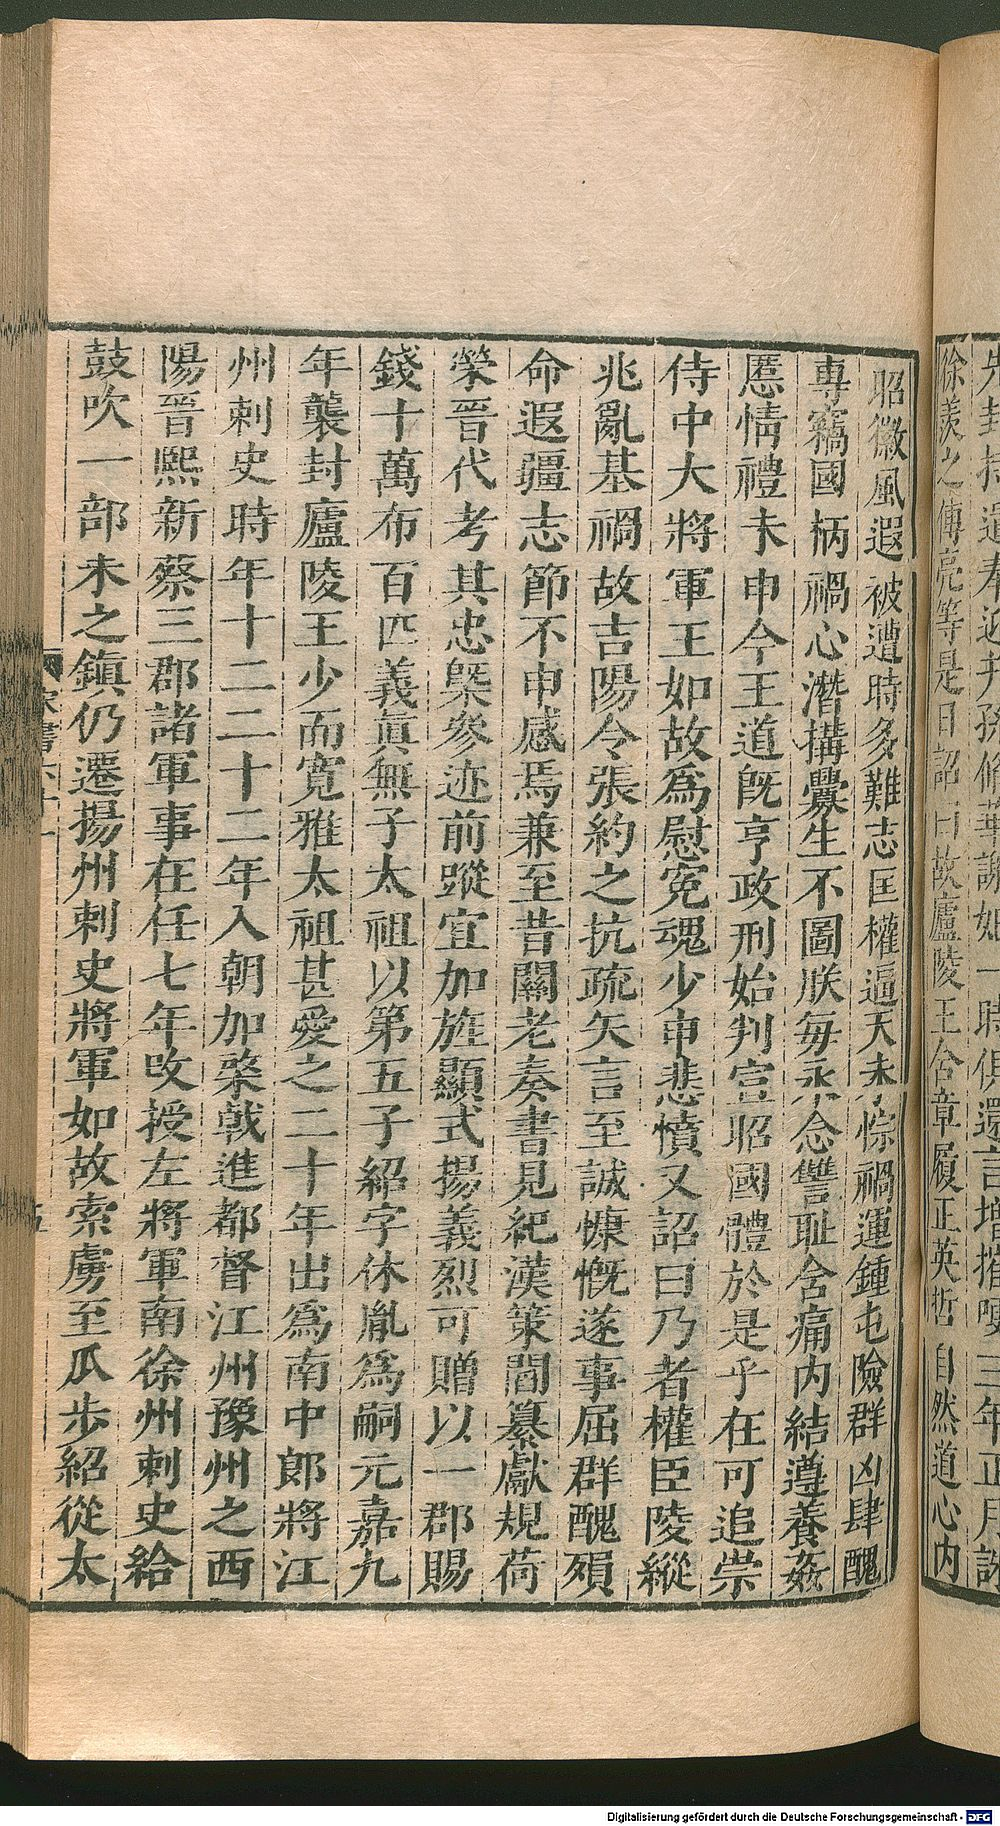 先封
徐羨之傅亮等是日詔曰故廬陵王含章履正英哲自然道心内
昭徽風遐被遭時多難志匡權逼天未悰禍運鍾屯險群凶肆醜
專竊國柄禍心潛搆釁生不圖朕每永念讐耻含痛内結遵養姦
慝情禮未申今王道旣亨政刑始判宣昭國體於是乎在可追崇
侍中大將軍王如故爲慰寃魂少申悲憤又詔曰乃者權臣陵縱
兆亂基禍故吉陽令張約之抗疏矢言至誠慷慨遂事屈群醜殞
命遐疆志節不申感焉兼至昔關老奏書見紀漢策閻纂獻規荷
榮晉代考其忠槩參迹前蹤宜加旌顯式揚義烈可贈以一郡賜
錢十萬布百匹義眞無子太祖以第五子紹字休胤爲嗣元嘉九
年襲封廬陵王少而寛雅太祖甚愛之二十年出爲南中郎將江
州刺史時年十二二十二年入朝加棨戟進都督江州豫州之西
陽晉熙新蔡三郡諸軍事在任七年改授左將軍南徐州刺史給
鼓吹一部未之鎮仍遷揚州刺史將軍如故索虜至瓜步紹從太
宋書六十一
五
Digitalisierung gefördert durch die Deutsche Forschungsgemeinschaft - DFG